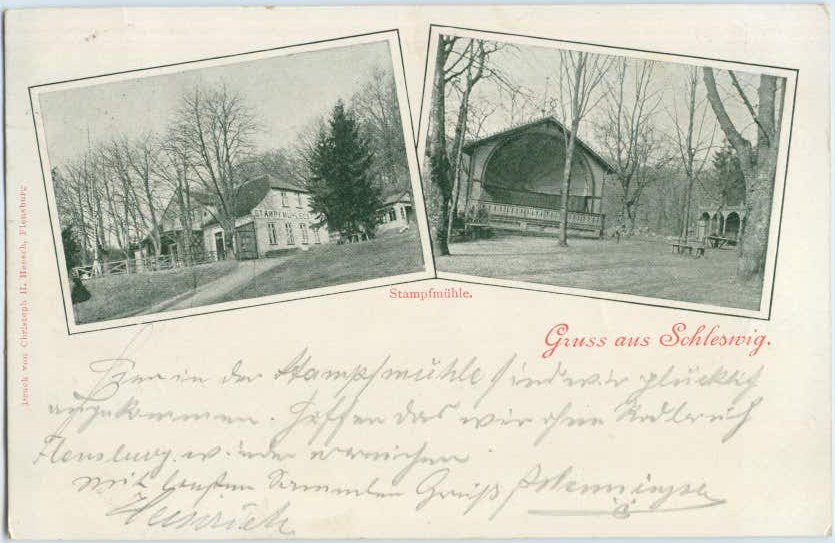 STAMPFMÜHLE
Stampfmühle.
Gruss aus Schleswig.
Druck von Christoph H. Hansch, Flensburg.
Hier in der Stampfmühle sind wir glücklich
angekommen. Hoffen das wir ohne Radbruch
Flensburg wieder erreichen
mit besten Gruß
Heinrich